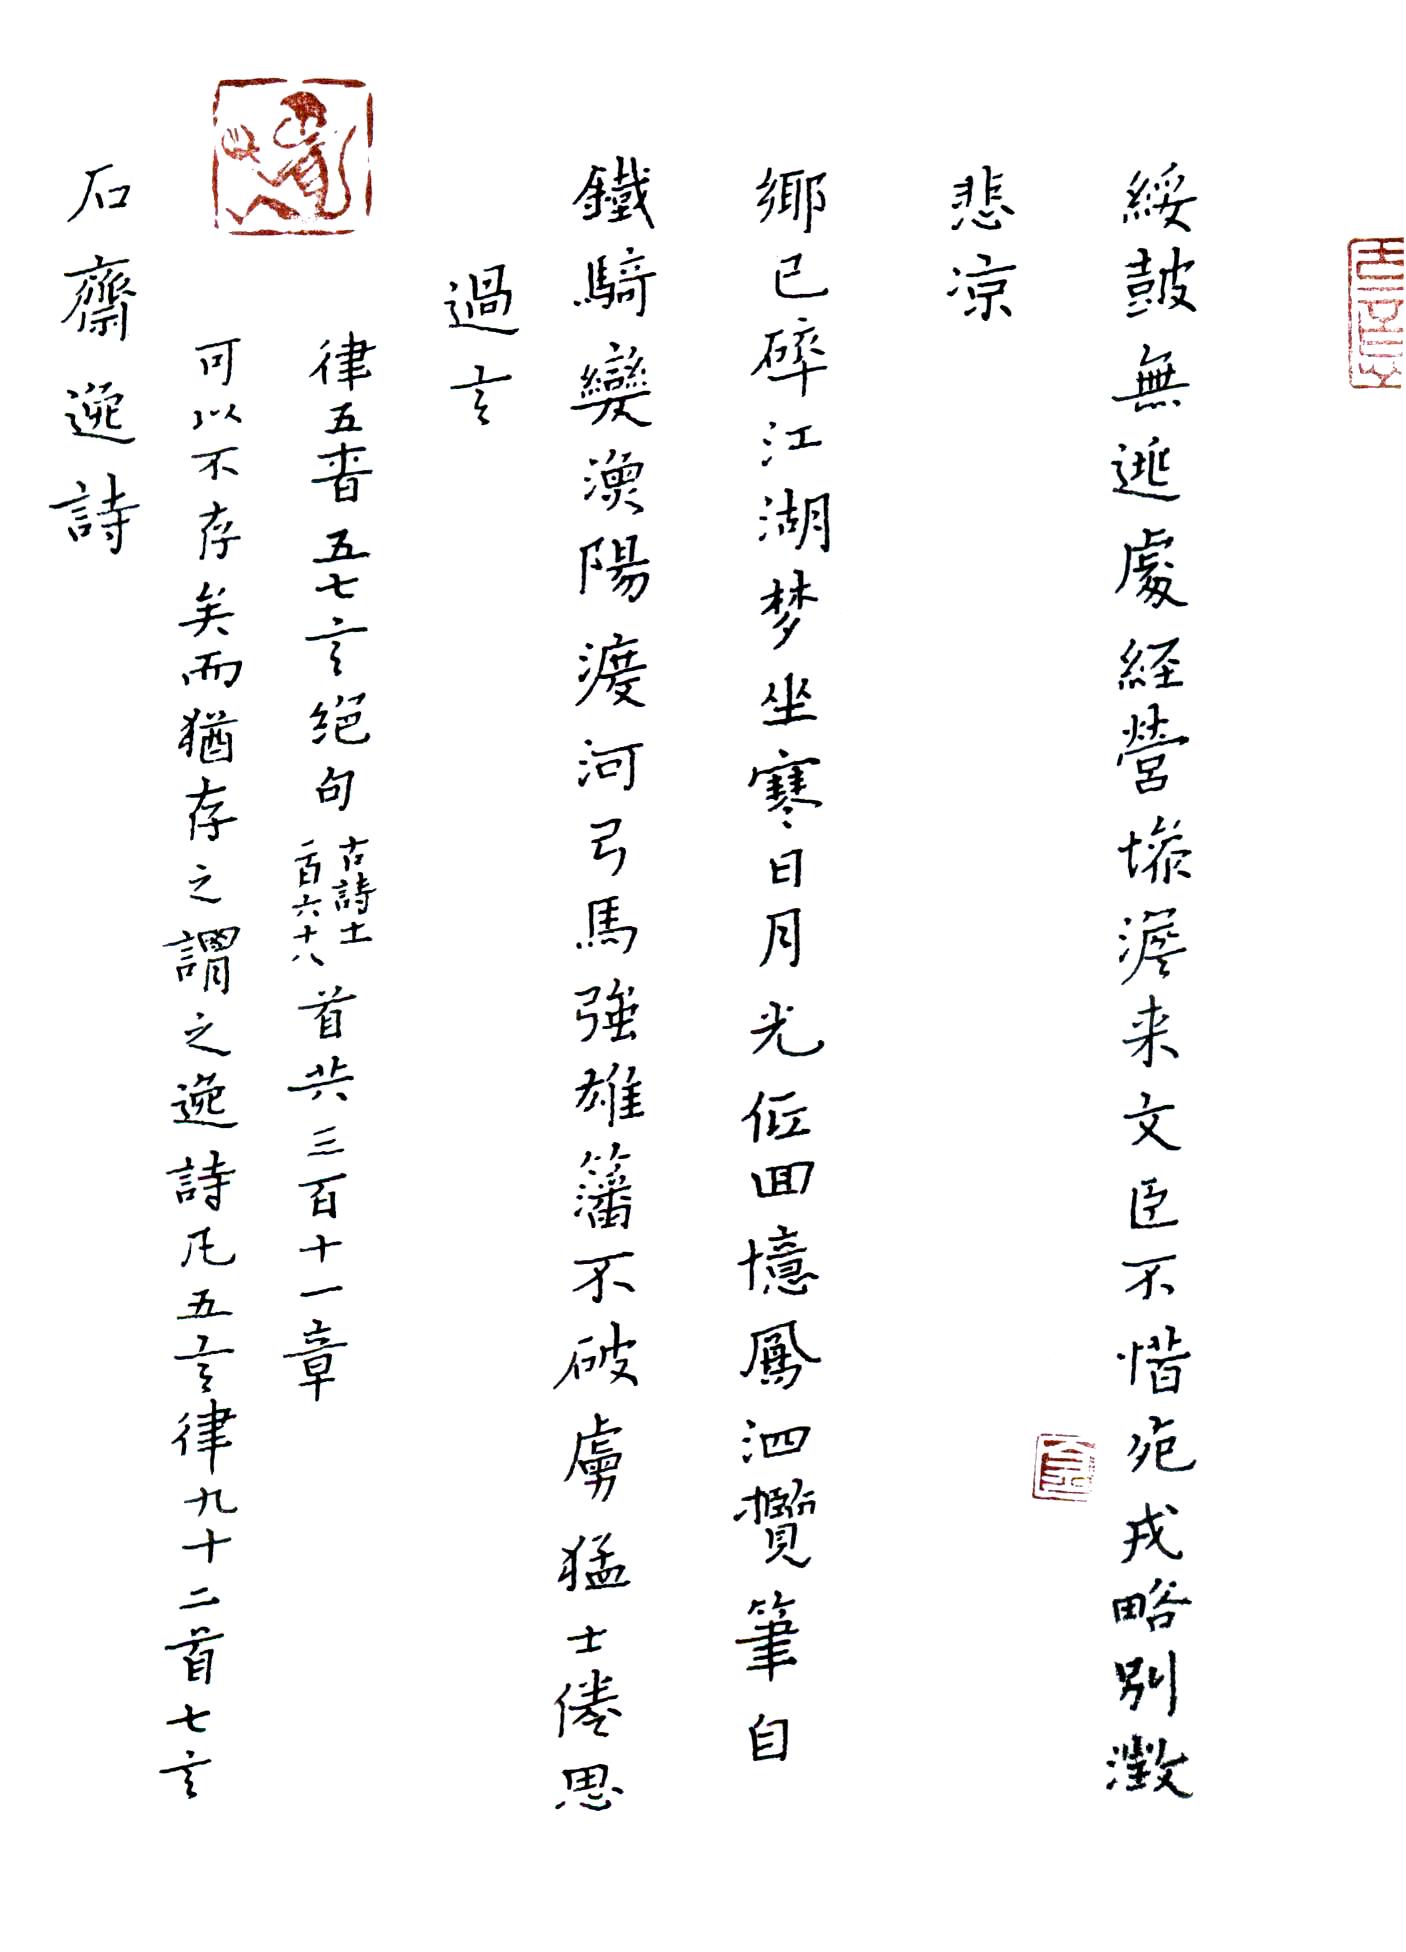 石齋逸詩
可以不存矣而猶存之謂之逸詩凡五言律九十二首七言
律五首五七言絕句古詩十一二百六十八首共三百十一章
過言
鐵騎變漁陽渡河弓馬強雄藩不破虜猛士倦思
鄉已碎江湖梦坐寒日月光低回憶鳳泗攬筆自
悲凉
綏鼓無逃處経營慘澹来文臣不惜死戎略別徵